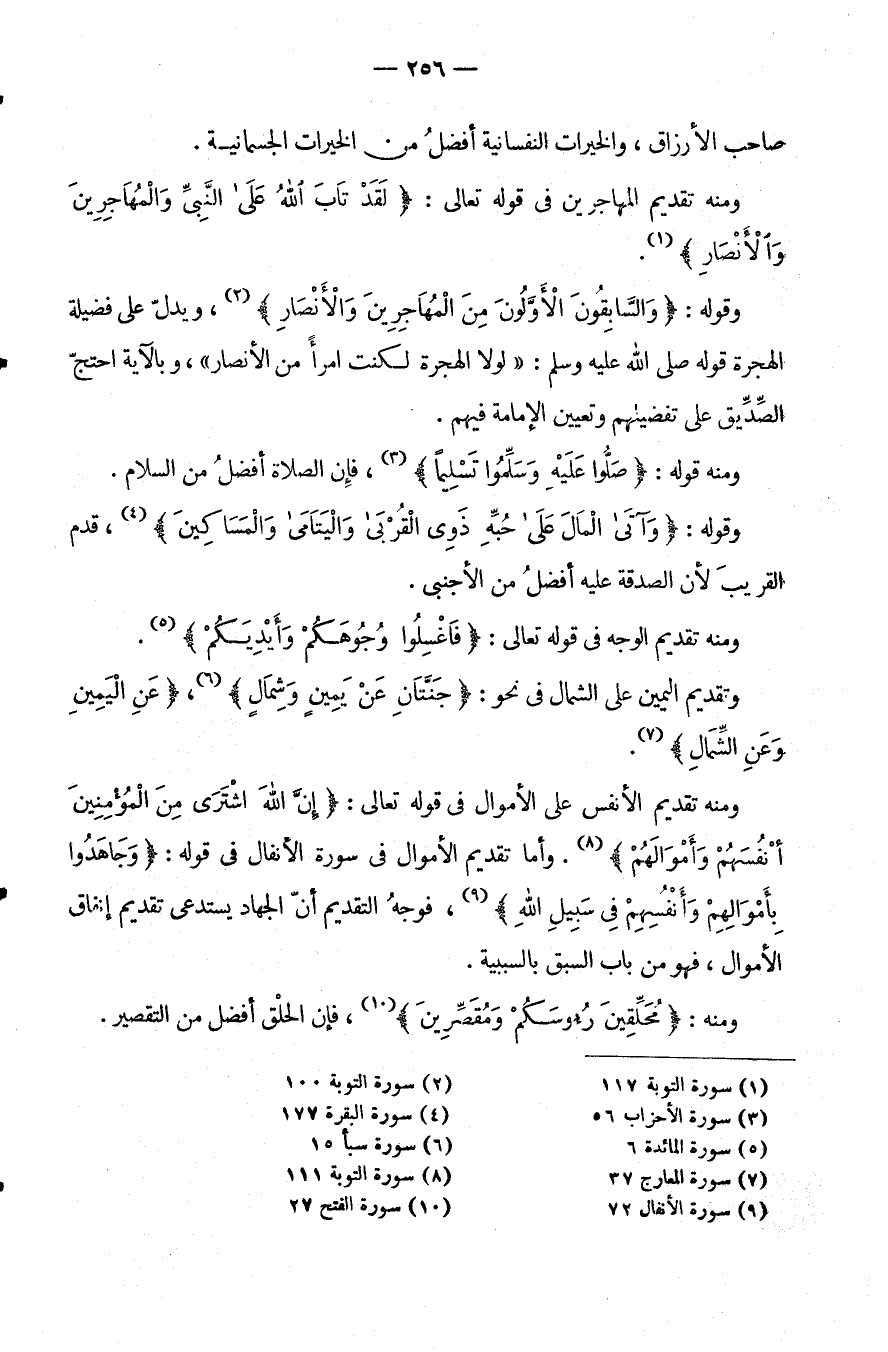 — ٢٥٦ —
صاحب الأرزاق ، والخيرات النفسانية أفضلُ من الخيرات الجسمانية .
ومنه تقديم المهاجرين فى قوله تعالى : ﴿ لَقَدْ تَابَ ٱللهُ عَلَىٰ النَّبِىِّ وَالْمُهَاجِرِينَ
وَٱلْأَنْصَارِ ﴾ (١) .
وقوله : ﴿ وَالسَّابِقُونَ الْأَوَّلُونَ مِنَ الْمُهَاجِرِينَ وَالْأَنْصَارِ ﴾ (٢) ، ويدلّ على فضيلة
الهجرة قوله صلى الله عليه وسلم : « لولا الهجرة لكنت امرأً من الأنصار» ، وبالآية احتجّ
الصِّدِّيق على تفضيلهم وتعيين الإمامة فيهم .
ومنه قوله : ﴿ صَلُّوا عَلَيْهِ وَسَلِّمُوا تَسْلِيماً ﴾ (٣) ، فإن الصلاة أفضلُ من السلام .
وقوله : ﴿ وَآتَىٰ الْمَالَ عَلَىٰ حُبِّهِ ذَوِى الْقُرْبَىٰ وَالْيَتَامَىٰ وَالْمَسَاكِينَ ﴾ (٤) ، قدم
القريبَ لأن الصدقة عليه أفضلُ من الأجنبى .
ومنه تقديم الوجه فى قوله تعالى : ﴿ فَاغْسِلُوا وُجُوهَكُمْ وَأَيْدِيَكُمْ ﴾ (٥) .
وتقديم اليمين على الشمال فى نحو : ﴿ جَنَّتَانِ عَنْ يَمِينٍ وَشِمَالٍ ﴾ (٦) ، ﴿ عَنِ الْيَمِينِ
وَعَنِ الشِّمَالِ ﴾ (٧) .
ومنه تقديم الأنفس على الأموال فى قوله تعالى : ﴿ إِنَّ اللهَ اشْتَرَى مِنَ الْمُؤْمِنِينَ
أَنْفُسَهُمْ وَأَمْوَالَهُمْ ﴾ (٨) . وأما تقديم الأموال فى سورة الأنفال فى قوله : ﴿ وَجَاهَدُوا
بِأَمْوَالِهِمْ وَأَنْفُسِهِمْ فِى سَبِيلِ اللهِ ﴾ (٩) ، فوجهُ التقديم أنّ الجهاد يستدعى تقديم إنفاق
الأموال ، فهو من باب السبق بالسببية .
ومنه : ﴿ مُحَلِّقِينَ رُءوسَكُمْ وَمُقَصِّرِينَ ﴾(١٠) ، فإن الحلْق أفضل من التقصير .
(١) سورة التوبة ١١٧ (٢) سورة التوبة ١٠٠
(٣) سورة الأحزاب ٥٦ (٤) سورة البقرة ١٧٧
(٥) سورة المائدة ٦ (٦) سورة سبأ ١٥
(٧) سورة المعارج ٣٧ (٨) سورة التوبة ١١١
(٩) سورة الأنفال ٧٢ (١٠) سورة الفتح ٢٧